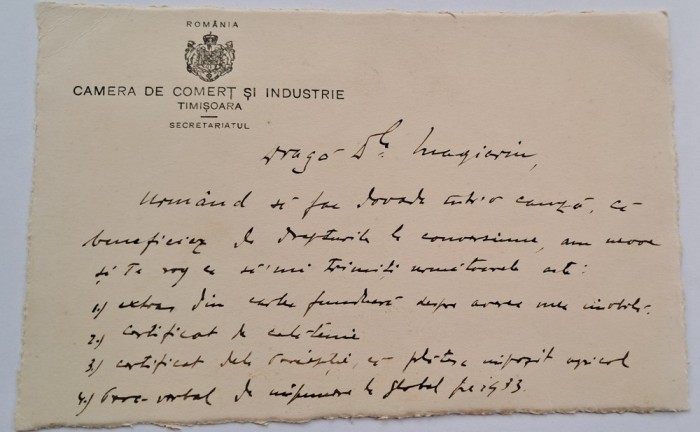 ROMÂNIA
CAMERA DE COMERȚ ȘI INDUSTRIE
TIMIȘOARA
SECRETARIATUL
Dragă Dle
Urmând să fac dovada într'o cauză, că
beneficiez de drepturile de conversiune, am nevoe
și Te rog ca să'mi trimiți următoarele acte:
1.) extras din cartea funduară despre averea mea imobil.
2.) certificat de cetățenie
3.) certificat dela Percepție, că plătesc impozit agricol
4.) Proc-verbal de impunere la global pe 1933.